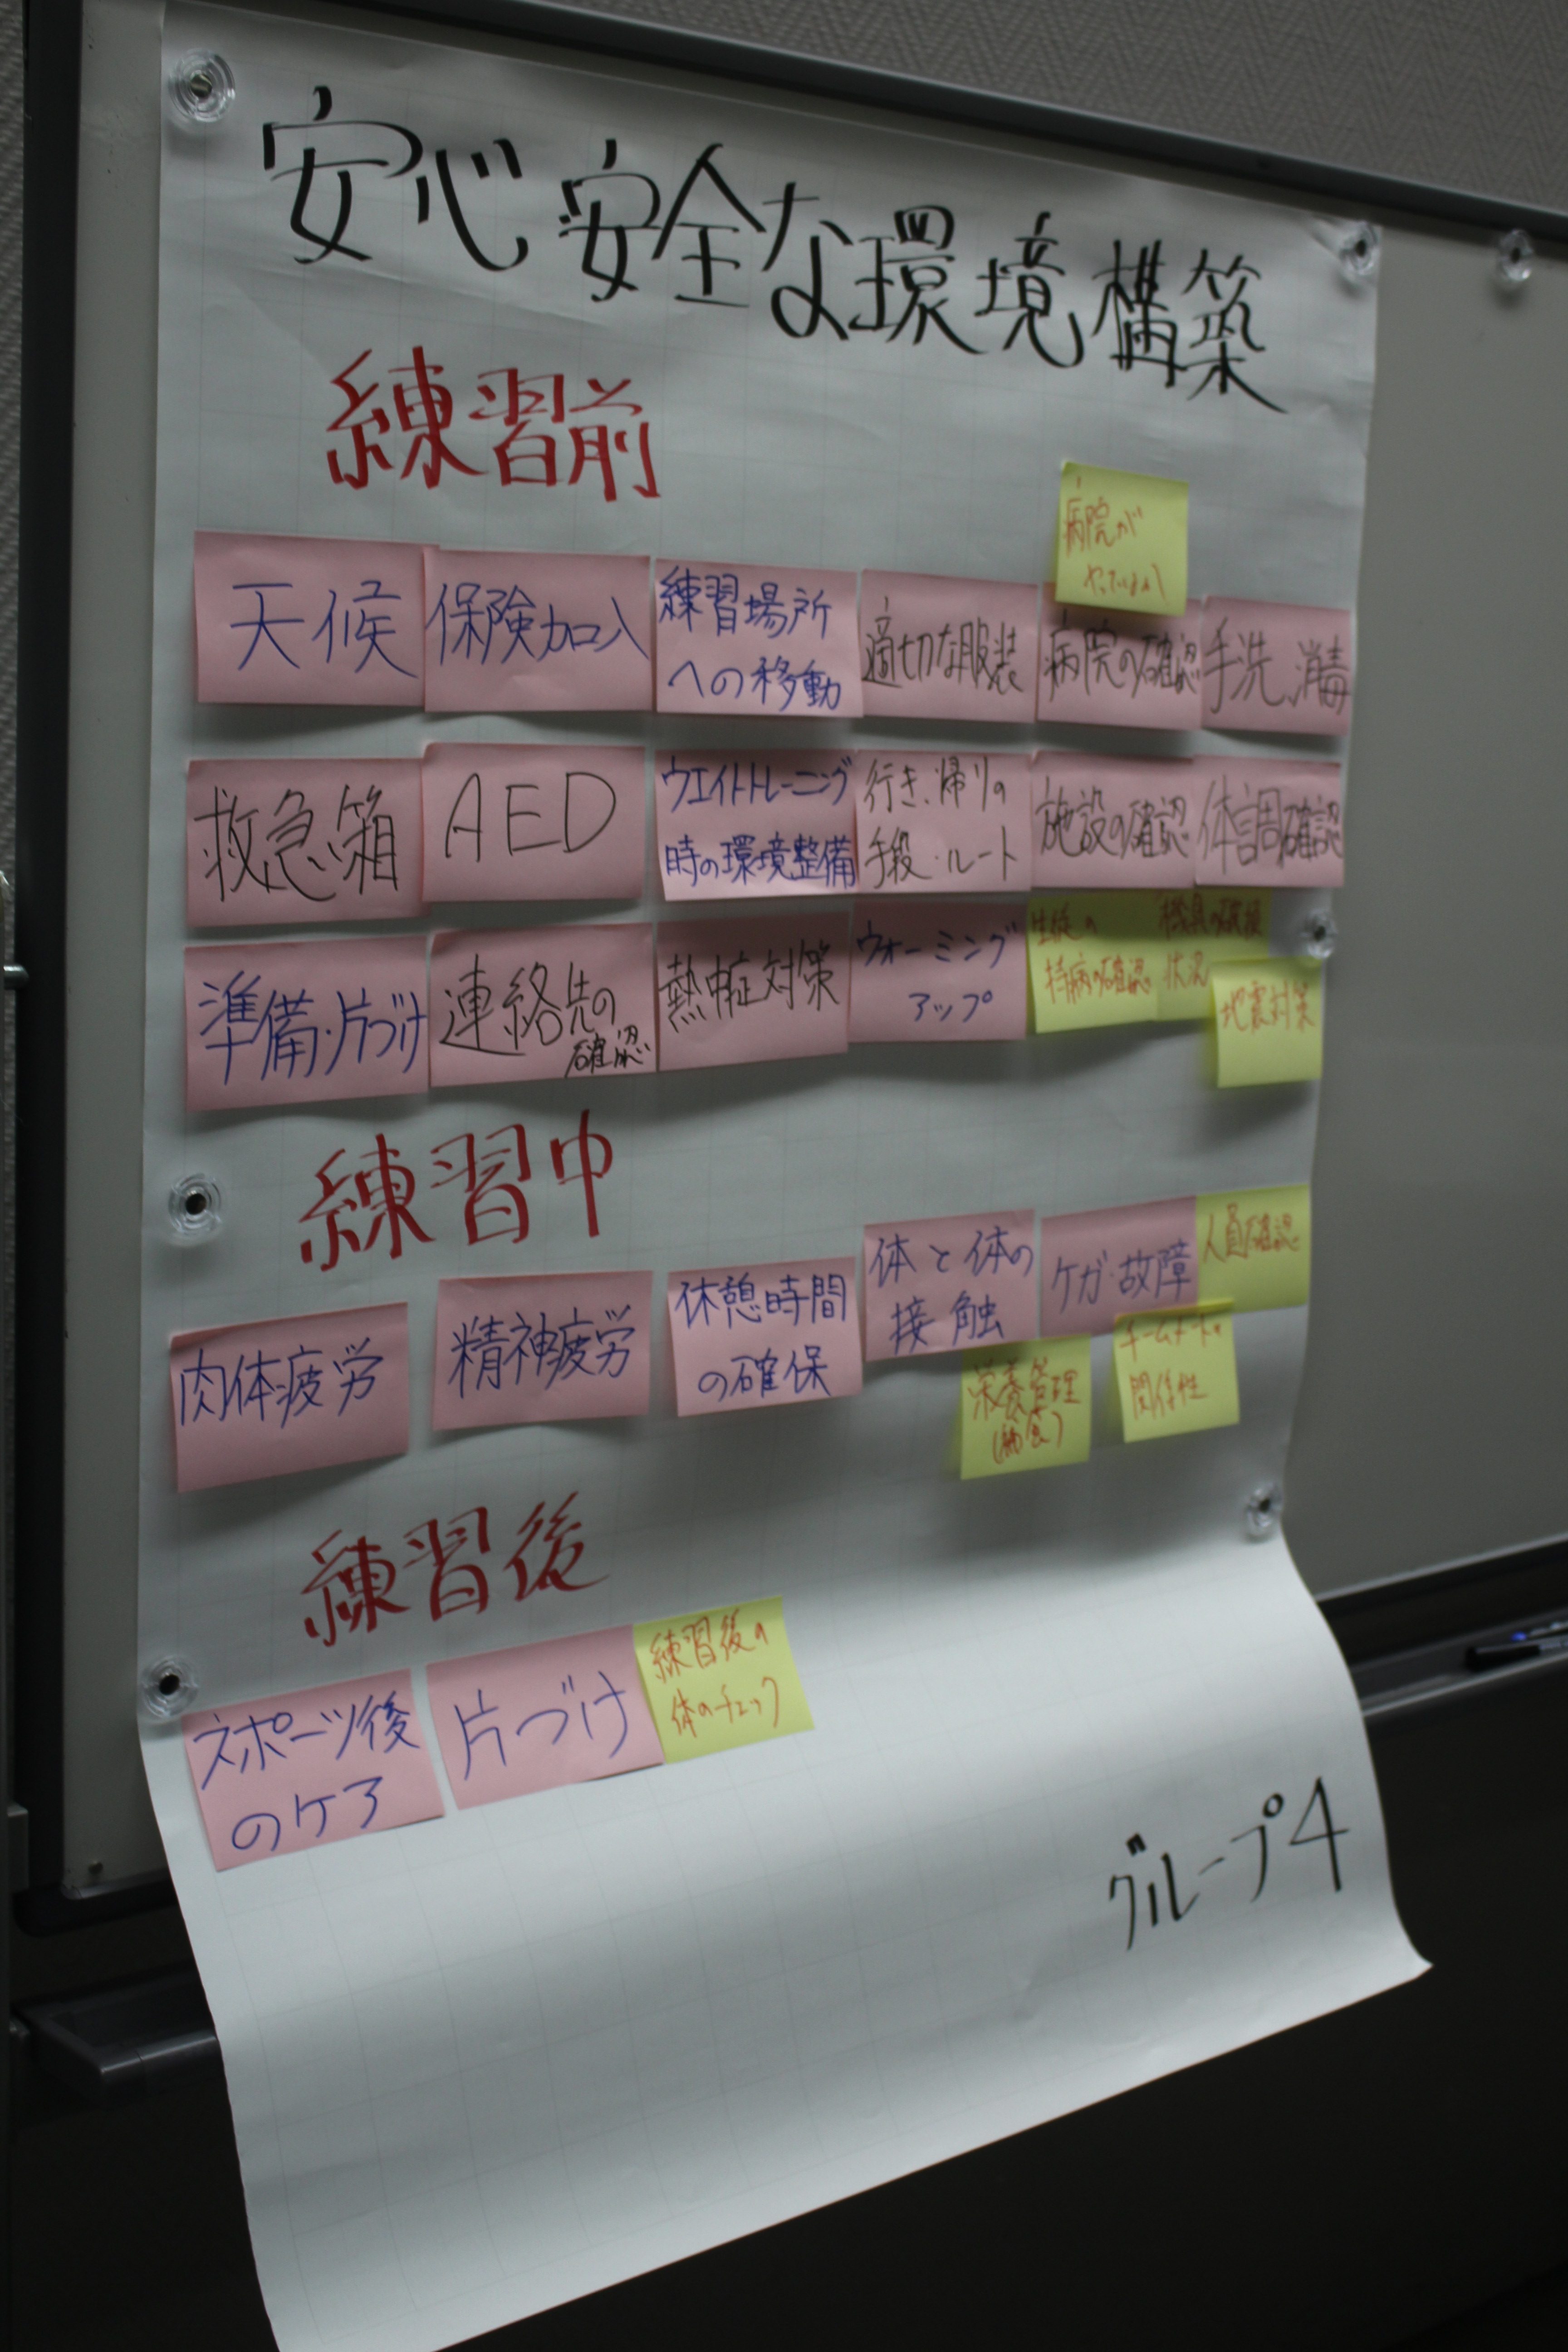 安心安全な環境構築
練習前
病院が
天候
保険加入
練習場所
への移動
適切な服装
病院の確認
手洗 消毒
救急箱
AED
ウエイトトレーニング
時の環境整備
行き、帰りの
手段・ルート
施設の確認
体調確認
準備・片づけ
連絡先の
確認
熱中症対策
ウォーミング
アップ
生徒の
持病の確認
機具の破損
状況
地震対策
練習中
肉体疲労
精神疲労
休憩時間
の確保
体と体の
接触
ケガ・故障
人員確認
栄養管理
(補食)
チームメートの
関係性
練習後
スポーツ後
のケア
片づけ
練習後の
体のチェック
グループ4